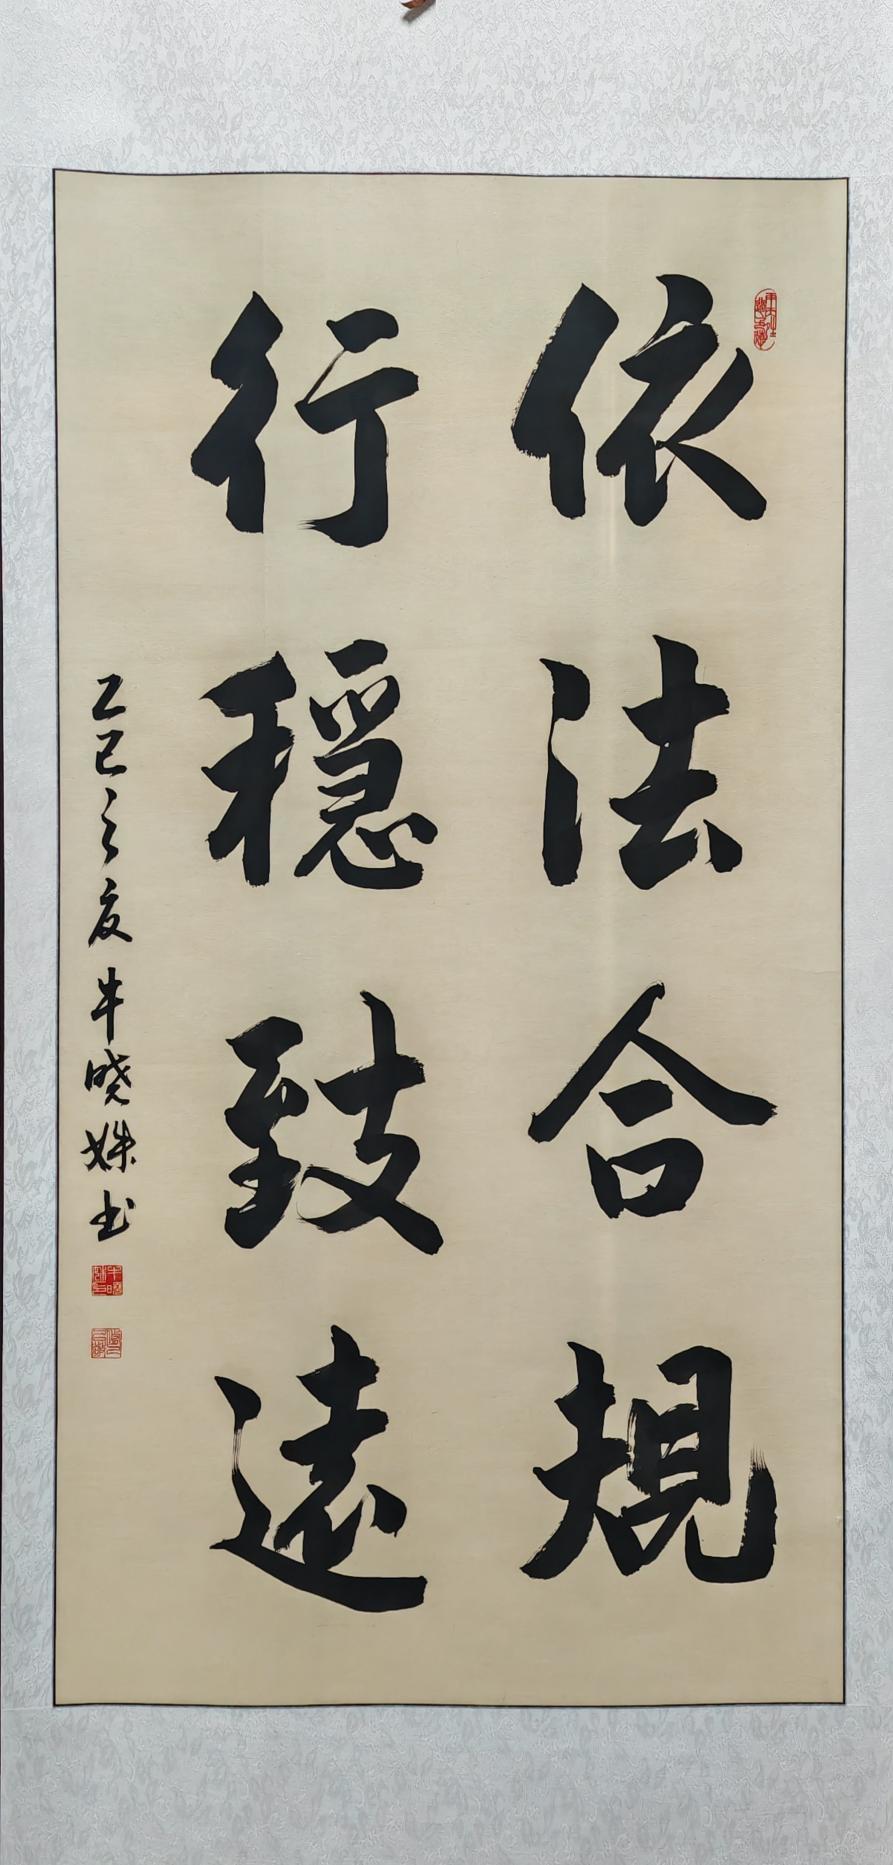 依法合規
行穩致遠
乙巳之夏牛晓姝书